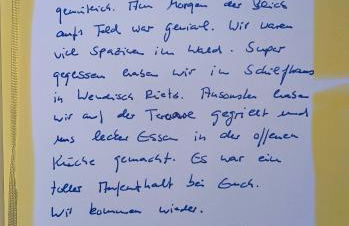 gemütlich. Am Morgen der Blick
aufs Feld war genial. Wir waren
viel Spazieren im Wald. Super
gegessen haben wir im Schilfhaus
in Wendisch Rietz. Ansonsten haben
wir auf der Terrasse gegrillt und
uns lecker Essen in der offenen
Küche gemacht. Es war ein
toller Aufenthalt bei Euch.
Wir kommen wieder.